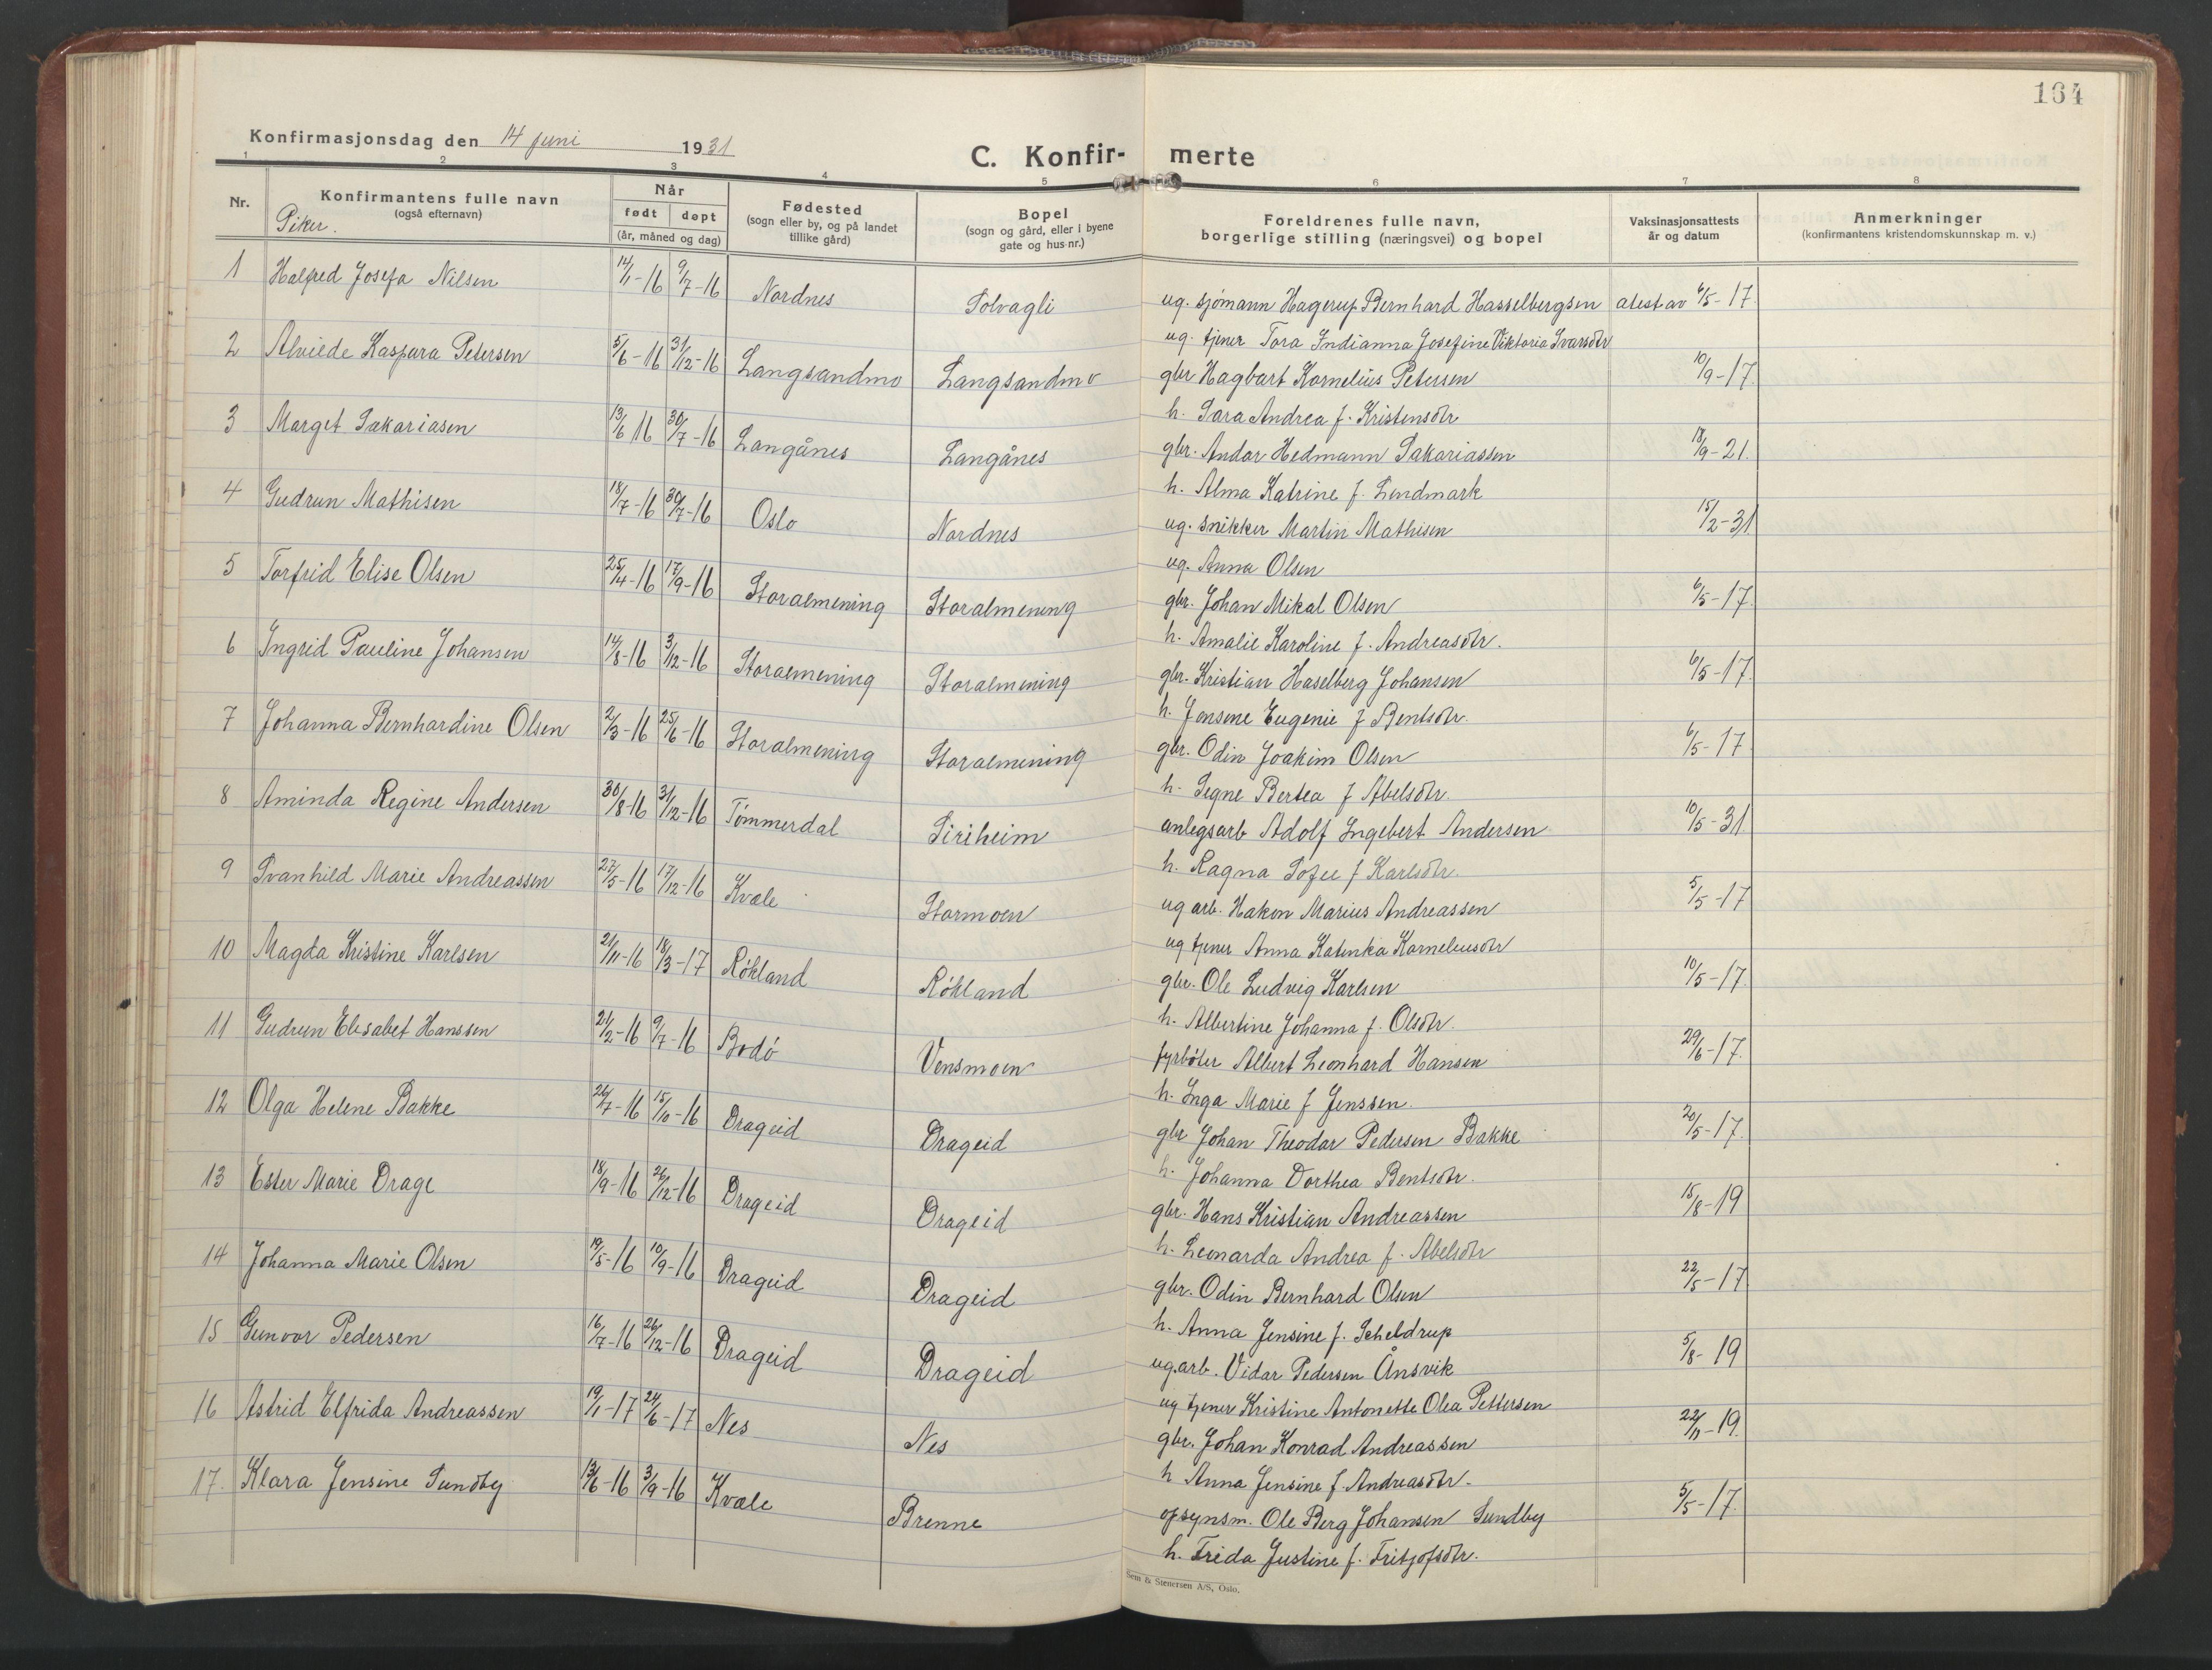 164
Konfirmasjonsdag den 14 juni 1931
C. Konfir- merte
1 2 3 4 5 6 7 8
Nr. Konfirmantens fulle navn (også efternavn) Piker. Når født døpt (år, måned og dag) Fødested (sogn eller by, og på landet tillike gård) Bopel (sogn og gård, eller i byene gate og hus-nr.) Foreldrenes fulle navn, borgerlige stilling (næringsvei) og bopel Vaksinasjonsattests år og datum Anmerkninger (konfirmantens kristendomskunnskap m. v.)
1 Halfred Josefa Nilsen 14/1-16 9/7-16 Nordnes Solvagli ug. sjømann Hagerup Bernhard Hasselbergsen atest av 6/5-17.
ug. tjener Tora Indianna Josefine Viktoria Ivarsdtr
2 Alvilde Kaspara Petersen 5/6-16 31/12-16 Langsandmo Langsandmo gbr Hagbart Kornelius Petersen 10/9-17.
h. Sara Andrea f. Kristensdtr
3 Marget Sakariasen 13/6 16 30/7-16 Langånes Langånes gbr. Andor Hedmann Sakariassen 18/9-21.
h. Alma Katrine f. Lindmark
4 Gudrun Mathisen 18/7-16 30/7-16 Oslo Nordnes ug. snikker Martin Mathisen 15/2-31
ug. Anna Olsen
5 Torfrid Elise Olsen 25/4-16 17/9-16 Storalmening Storalmening gbr. Johan Mikal Olsen 6/5-17.
h. Amalie Karoline f. Andreasdtr.
6 Ingrid Pauline Johansen 14/8-16 3/12-16 Storalmening Storalmening gbr. Kristian Haselberg Johansen 6/5-17.
h. Jonsine Eugenie f Bentsdtr.
7 Johanna Bernhardine Olsen 2/3-16 25/6-16 Storalmening Storalmening gbr. Odin Joakim Olsen 6/5-17
h. Signe Bertea f Abelsdtr.
8 Aminda Regine Andersen 30/8-16 31/12-16 Tømmerdal Siriheim anlegsarb Adolf Ingebert Andersen 10/5-31
h. Ragna Sofie f Karlsdtr.
9 Svanhild Marie Andreassen 27/5-16 17/12-16 Kvæle Stormoen ug arb. Hakon Marius Andreassen 5/5-17
ug tjener Anna Katinka Korneliusdtr
10 Magda Kristine Karlsen 21/11-16 18/3-17 Røkland Røkland gbr. Ole Ludvig Karlsen 10/5-17.
h. Albertine Johanna f. Olsdtr.
11 Gudrun Elisabet Hanssen 21/2-16 9/7-16 Bodø Vensmoen fyrbøter Albert Leonhard Hansen 29/6-17.
h. Inga Marie f Jenssen.
12 Olga Helene Bakke 26/7-16 15/10-16 Drageid Drageid gbr Johan Theodor Pedersen Bakke 20/5-17.
h. Johanna Dorthea Bentsdtr.
13 Ester Marie Drage 18/9-16 26/12-16 Drageid Drageid gbr. Hans Kristian Andreassen 15/8-19
h. Leonarda Andrea f. Abelsdtr
14 Johanna Marie Olsen 19/5-16 10/9-16 Drageid Drageid gbr. Odin Bernhard Olsen 22/5-17
h. Anna Jensine f. Scheldrup
15 Gunvor Pedersen 16/7-16 26/12-16 Drageid Drageid ug.arb. Vidar Pedersen Ånsvik 5/8-19
ug tjener Kristine Antonette Olea Pettersen
16 Astrid Elfrida Andreassen 19/1-17 24/6-17 Nes Nes gbr. Johan Konrad Andreassen 22/11-19.
h Anna Jensine f. Andreasdtr.
17. Klara Jensine Sundby 13/6-16 3/9-16 Kvæle Brenne opsynsm. Ole Berg Johansen Sundby 5/5-17.
h. Frida Justine f. Fritjofsdtr.
Sem & Stenersen A/S, Oslo.